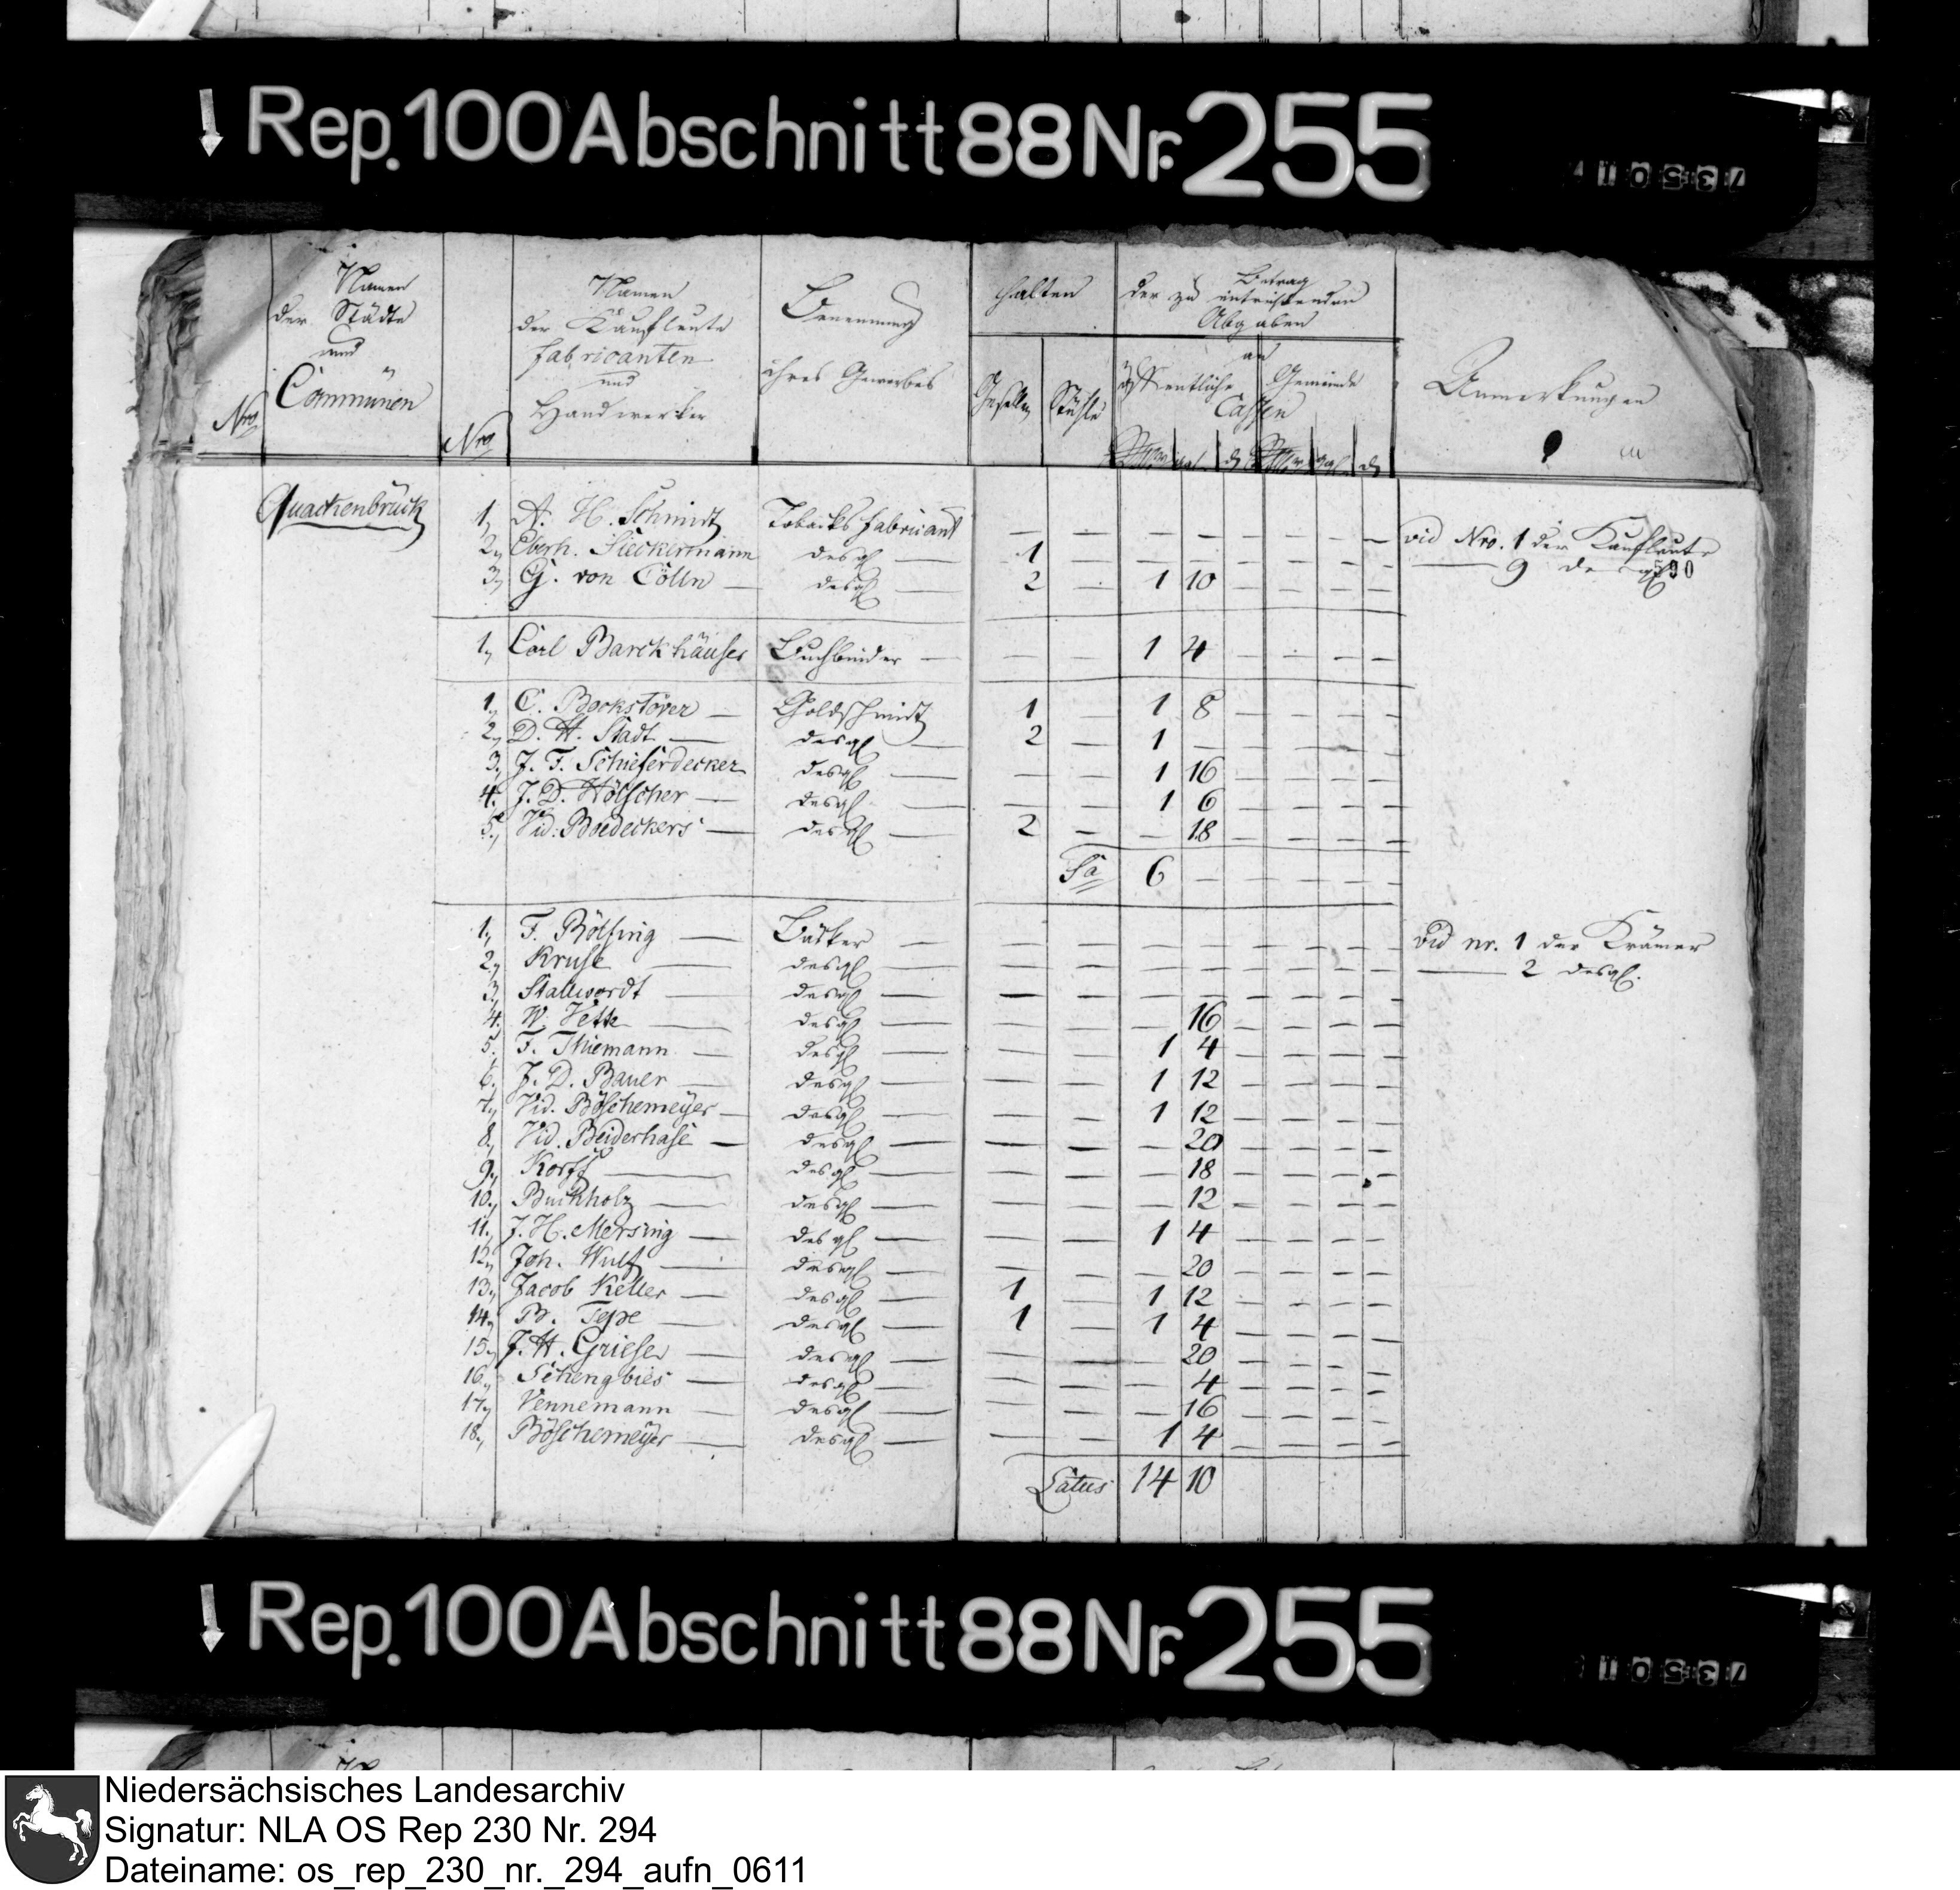 Rep. 100 Abschnitt 88 Nr. 255
Nro
Namen
der Städte
und
Communen
Nro
Namen
der Kaufleute
Fabricanten
und
Handwerker
Benennung
ihres Gewerbes
Halten
Gesellen
Stühle
Betrag
der zu entrichtenden
Abgaben
an
öffentliche Gemeinde
Cassen
Anmerkungen
Quackenbrück 1, A. H. Schmidt Tobacks fabricant — — — — — — — — vid Nro. 1 der Kaufleute
2, Eberh. Sieckermann desgl — 1 — — — — — — — — 9 desgl
590
3, G. von Cölln — desgl — 2 — 1 10 — — — —
1, Carl Barckhäuser Buchbinder — — — 1 4 — — — —
1, C. Bockstöver — Goldschmidt 1 — 1 8 — — — —
2, D. H. Stadt — desgl — 2 — 1 — — — — —
3, J. F. Schieferdecker desgl — — — 1 16 — — — —
4, J. D. Hölscher — desgl — — — 1 6 — — — —
5, Vid: Boedeckers — desgl — 2 — — 18 — — — —
Sa 6 — — — — —
1, F. Bölsing — Bäcker — — — — — — — — — vid nr. 1 der Krämer
2, Kruse — desgl — — — — — — — — — — 2 desgl.
3, Stallwordt — desgl — — — — — — — — —
4, W. Vette — desgl — — — — 16 — — — —
5, F. Thiemann — desgl — — — 1 4 — — — —
6, J. D. Bauer — desgl — — — 1 12 — — — —
7, Vid. Böschemeyer — desgl — — — 1 12 — — — —
8, Vid. Beiderhase — desgl — — — — 20 — — — —
9, Korff — desgl — — — — 18 — — — —
10, Buckholz — desgl — — — — 12 — — — —
11, J. H. Mersing — desgl — — — 1 4 — — — —
12, Joh. Wulf — desgl — — — — 20 — — — —
13, Jacob Keller — desgl — 1 — 1 12 — — — —
14, B. Tepe — desgl — 1 — 1 4 — — — —
15, J. H. Grieser — desgl — — — — 20 — — — —
16, Schengbies — desgl — — — — 4 — — — —
17, Vennemann — desgl — — — — 16 — — — —
18, Böschemeyer — desgl — — — 1 4 — — — —
Latus 14 10
Rep. 100 Abschnitt 88 Nr. 255
Niedersächsisches Landesarchiv
Signatur: NLA OS Rep 230 Nr. 294
Dateiname: os_rep_230_nr._294_aufn_0611